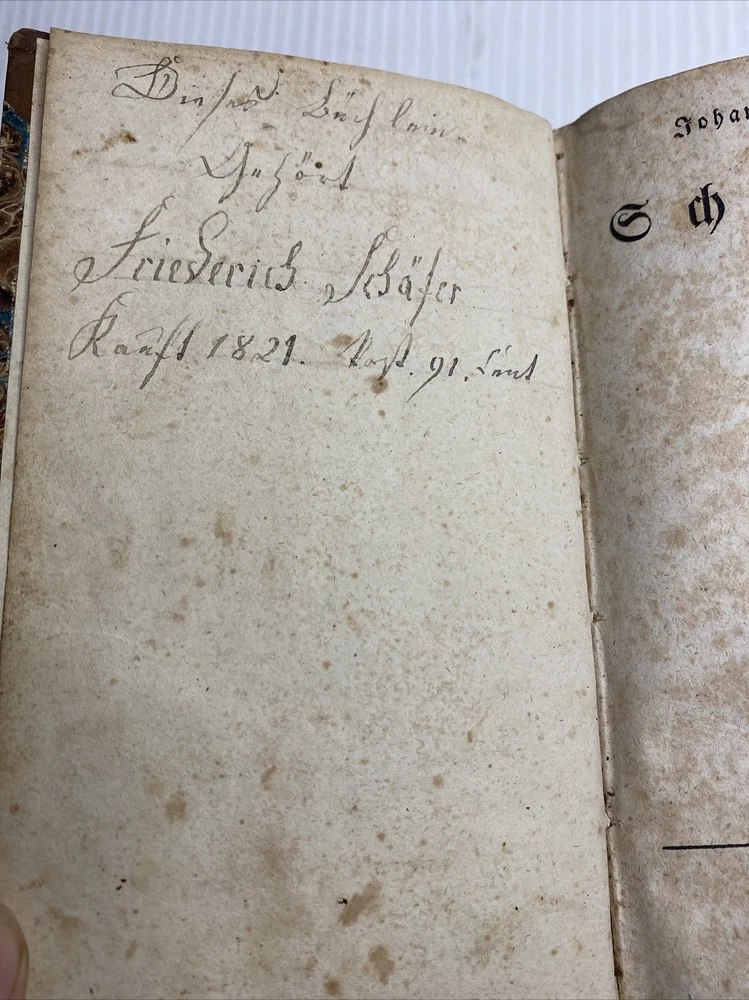 Dieses Büchlein.
Gehört
Friederich Schäfer
Kauft 1821. Kost. 91. Cent
Johan
Sch